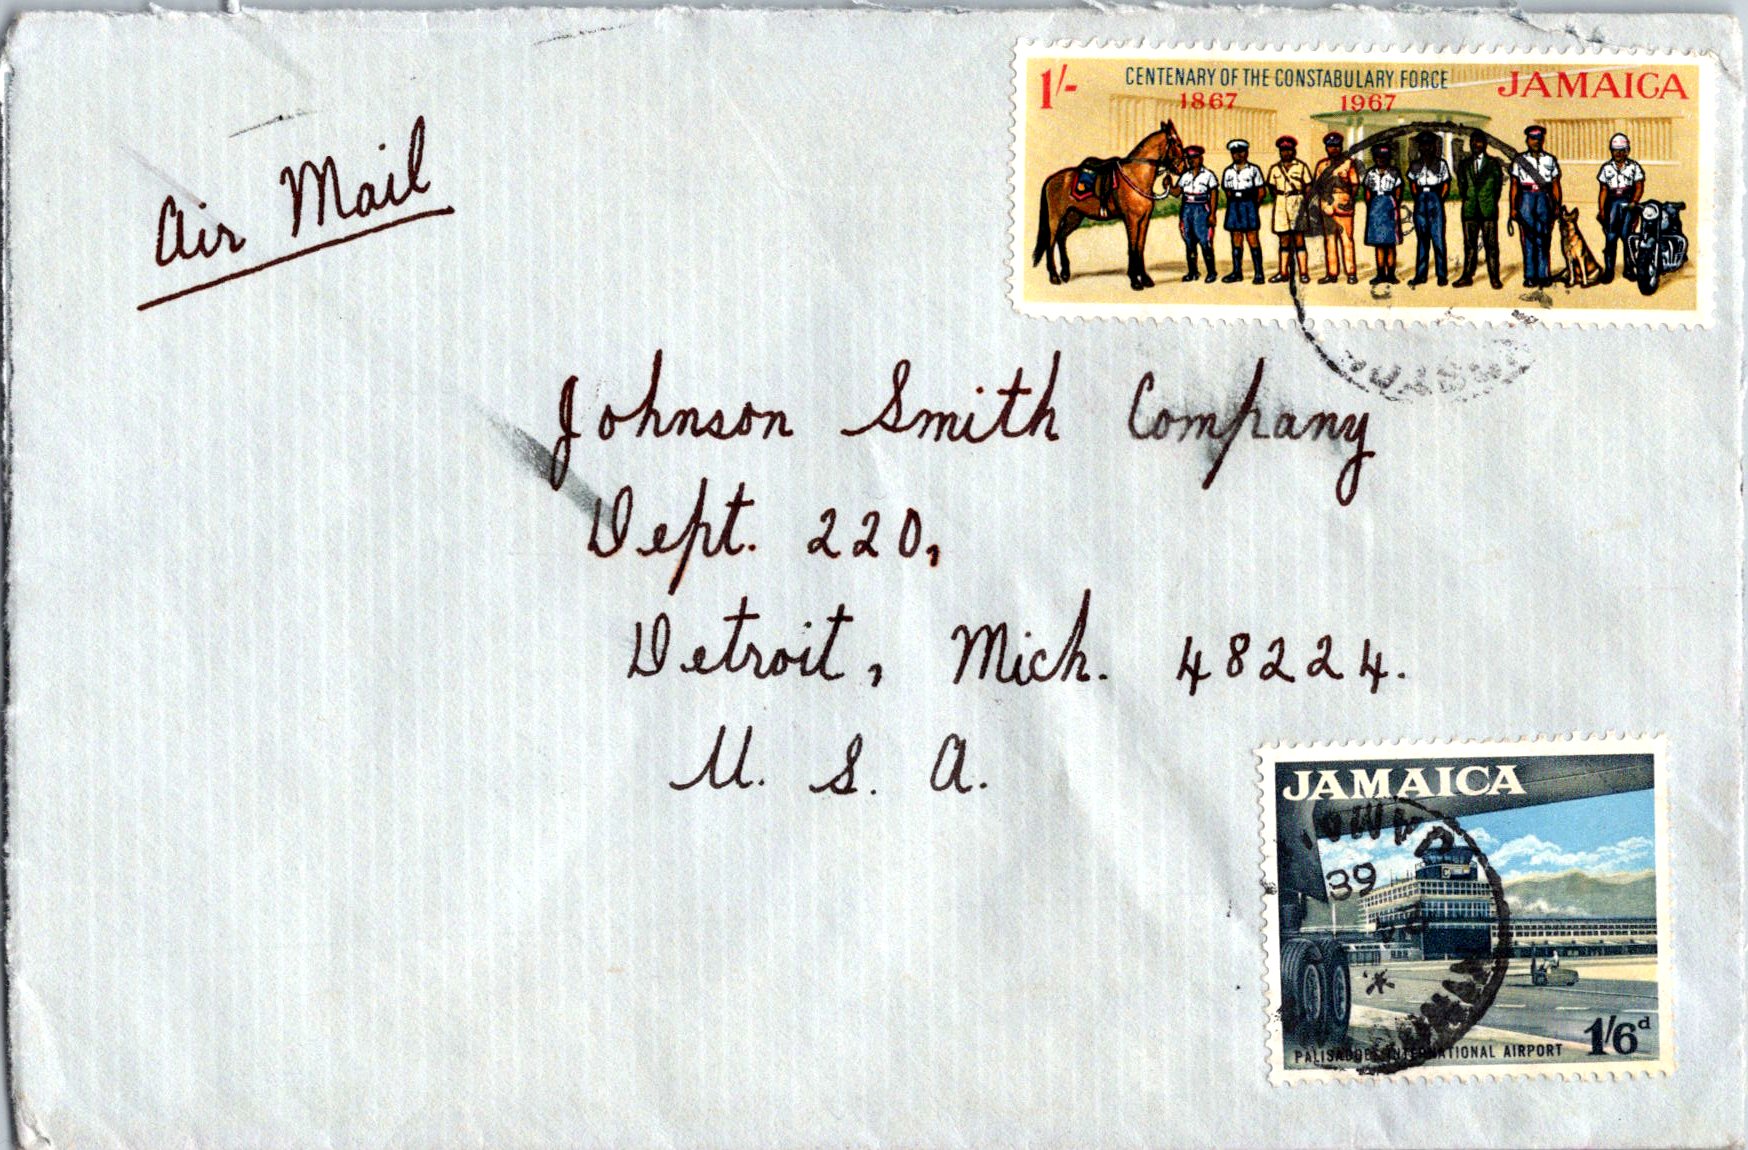 Air Mail
1/-
CENTENARY OF THE CONSTABULARY FORCE
1867 1967
JAMAICA
Johnson Smith Company
Dept. 220,
Detroit, Mich. 48224.
U. S. A.
JAMAICA
39
PALISADOES INTERNATIONAL AIRPORT
1/6d